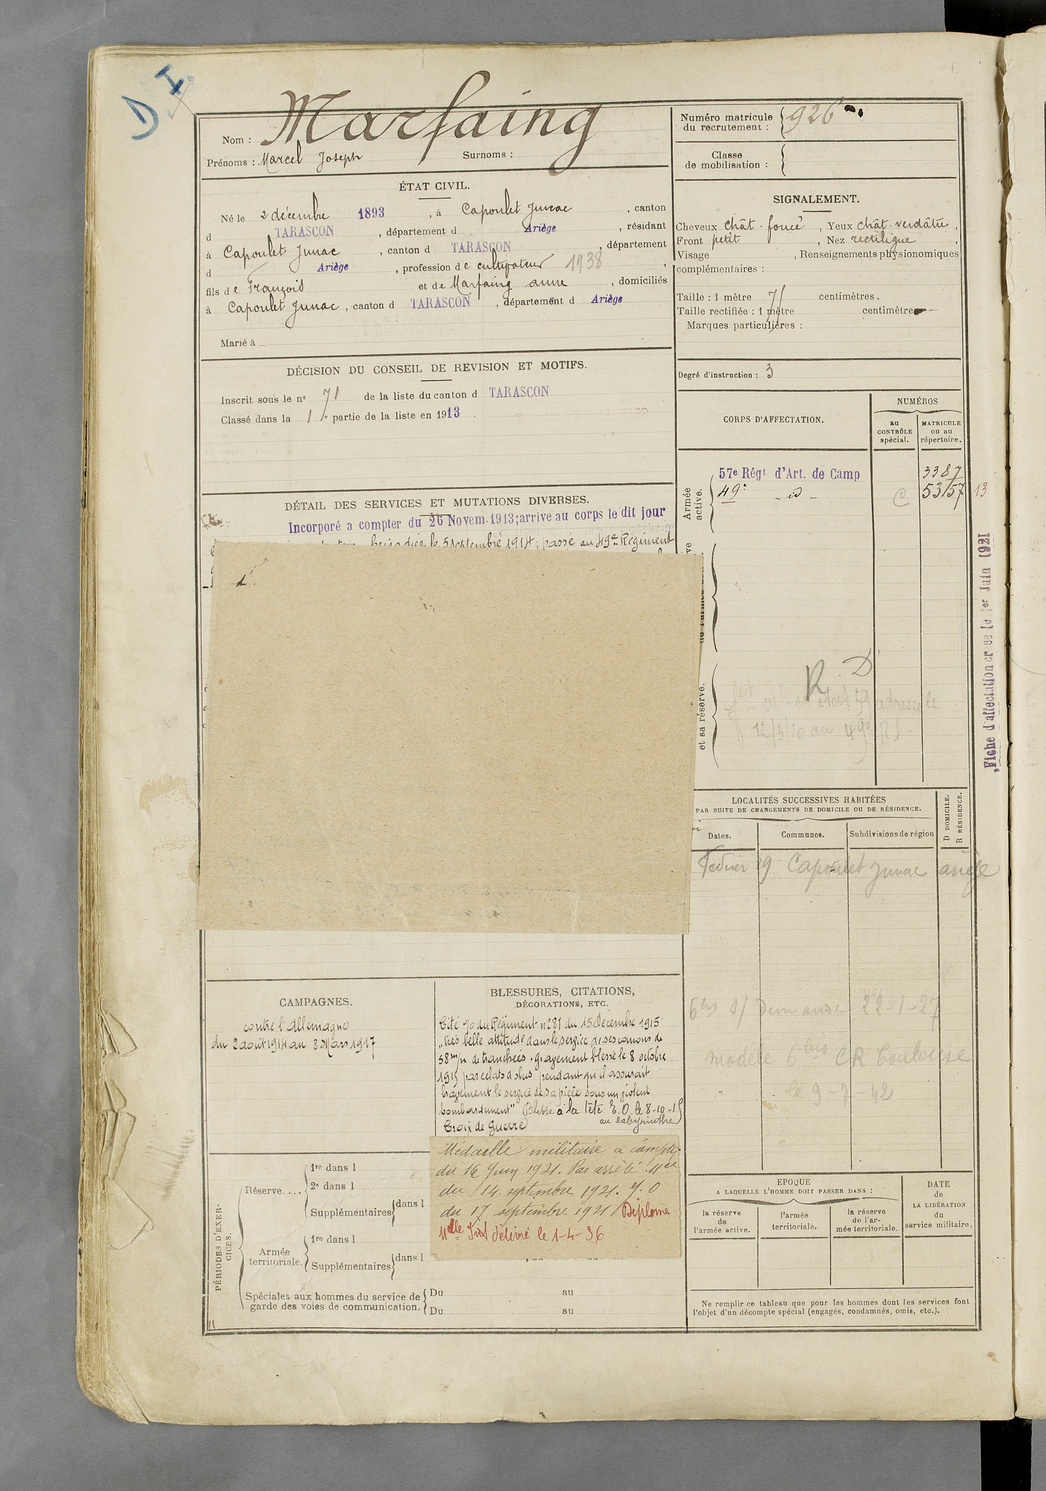 D I
Nom : Marfaing
Prénoms : Marcel Joseph Surnoms :
Numéro matricule du recrutement : 926
Classe de mobilisation :
ÉTAT CIVIL.
Né le 2 décembre 1893, à Capoulet Junac, canton
d TARASCON, département d Ariège, résidant
à Capoulet Junac, canton d TARASCON, département
d Ariège, profession de cultivateur 1938,
fils de François et de Marfaing anne, domiciliés
à Capoulet Junac, canton d TARASCON, département d Ariège
Marié à
SIGNALEMENT.
Cheveux chât-foncé, Yeux chât-verdâtre,
Front petit, Nez rectiligne,
Visage , Renseignements physionomiques
complémentaires :
Taille : 1 mètre 71 centimètres.
Taille rectifiée : 1 mètre centimètre
Marques particulières :
Degré d'instruction : 3
DÉCISION DU CONSEIL DE REVISION ET MOTIFS.
Inscrit sous le n° 71 de la liste du canton d TARASCON
Classé dans la 1re partie de la liste en 1913
CORPS D'AFFECTATION.
NUMÉROS
au CONTRÔLE spécial.
MATRICULE ou au répertoire.
Armée active.
57e Régt d'Art. de Camp 3387
49e - d° - C 53157 13
et sa réserve.
R. D
12/3/20 au 49e
Fiche d'affectation créée le 1er Juin 1921
DÉTAIL DES SERVICES ET MUTATIONS DIVERSES.
Incorporé a compter du 26 Novem. 1913; arrivé au corps le dit jour
brigadier le 5 septembre 1914; passé au 49e Régiment
LOCALITÉS SUCCESSIVES HABITÉES
PAR SUITE DE CHANGEMENTS DE DOMICILE OU DE RÉSIDENCE.
Dates. Communes. Subdivisions de région
D DOMICILE.
R RÉSIDENCE.
Février 19 Capoulet Junac ariège
6bis s/ Demande 22-1-27
modèle 6bis CR Toulouse
le 9-7-42
CAMPAGNES.
contre l'Allemagne
du 2 août 1914 au 8 Mars 1917
BLESSURES, CITATIONS,
DÉCORATIONS, ETC.
Cité 90 du Régiment n° 281 du 15 décembre 1915
"très belle attitude dans le service de ses canons de
58 m/m de tranchées, gravement blessé le 8 octobre
1915 par éclats d'obus pendant qu'il assurait
bravement le service de sa pièce sous un violent
bombardement" Blessé à la tête E.O. le 8-10-15
au Labyrinthe
Croix de Guerre
Médaille militaire à compter
du 16 Juin 1921. Par arrêté Mel
du 14 septembre 1921. J.O
du 17 septembre 1921 Diplôme
délivré le 1-4-36
PÉRIODES D'EXERCICES.
Réserve....
1re dans l
2e dans l
Supplémentaires dans l
Armée territoriale.
1re dans l
Supplémentaires dans l
Spéciales aux hommes du service de garde des voies de communication.
Du au
Du au
EPOQUE
A LAQUELLE L'HOMME DOIT PASSER DANS :
la réserve de l'armée active.
l'armée territoriale.
la réserve de l'armée territoriale.
DATE de LA LIBÉRATION du service militaire.
Ne remplir ce tableau que pour les hommes dont les services font
l'objet d'un décompte spécial (engagés, condamnés, omis, etc.).